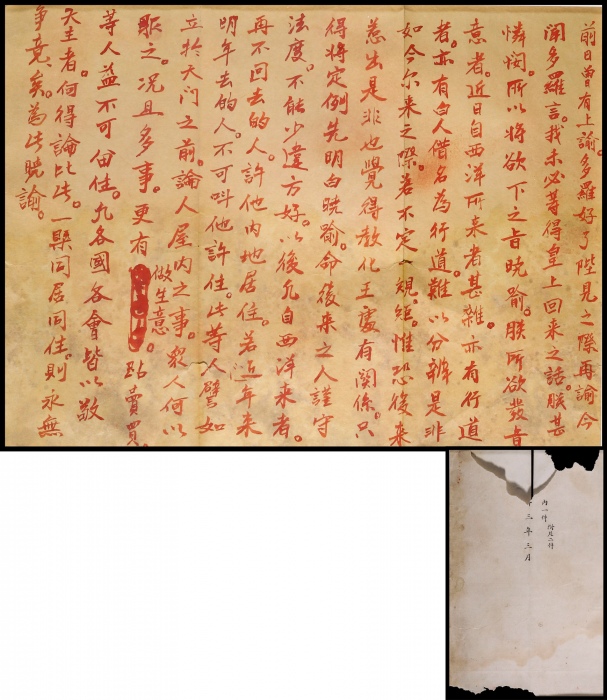 前日曾有上諭。多羅好了陛見之際再諭今
聞多羅言。我未必等得皇上回来之話。朕甚
憐悯。所以将欲下之旨晓諭。朕所欲發旨
意者。近日自西洋所来者甚雜。亦有行道
者。亦有白人借名為行道。難以分辨是非。
如今尔来之際。若不定一規矩。惟恐後来
惹出是非。也覺得教化王處有関係。只
得将定例先明白晓諭。命後来之人謹守
法度。不能少違方好。以後凡自西洋来者。
再不回去的人。許他内地居住。若近年来
明年去的人。不可叫他許住。此等人譬如
立於大门之前。論人屋内之事。衆人何以
服之。况且多事。更有做生意。跕賣買。
等人益不可留住。凢各國各會皆以敬
天主者。何得論比此。一槩同居同住。則永無
争竞矣。為此晓諭。
内一件
附片二件
三年三月